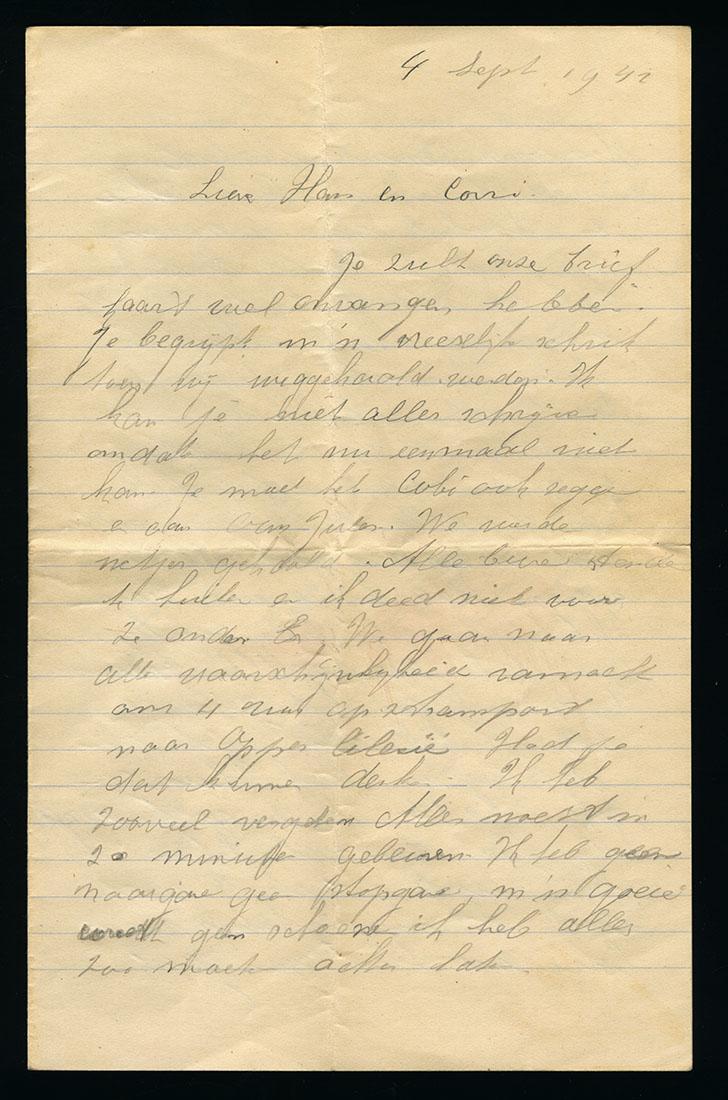 4 Sept 1942
Lieve Hans en Corri.
Je zult onze brief
kaart wel onvangen hebben.
Je begrijpt m'n vreeselijk schrik
toen wij weggehaald werden. Ik
kan je niet alles schrijve
omdat het nu eenmaal niet
kan. Je moet het Cobi ook zegge
e aan . We werde
netjes gehaald. Alle bure stonde
te huilen en ik deed niet voor
ze onder En We gaan naar
alle waarschijnlijkheid vannacht
om 4 uur op transport
naar Opper Silesië Had je
dat kunne denke. Ik heb
zooveel vergeten Alles moest in
20 minute gebeuren Ik heb geen
naaigare gee stopgare, m'n goeie
 geen schoene ik heb alles
zoo moete achter late.